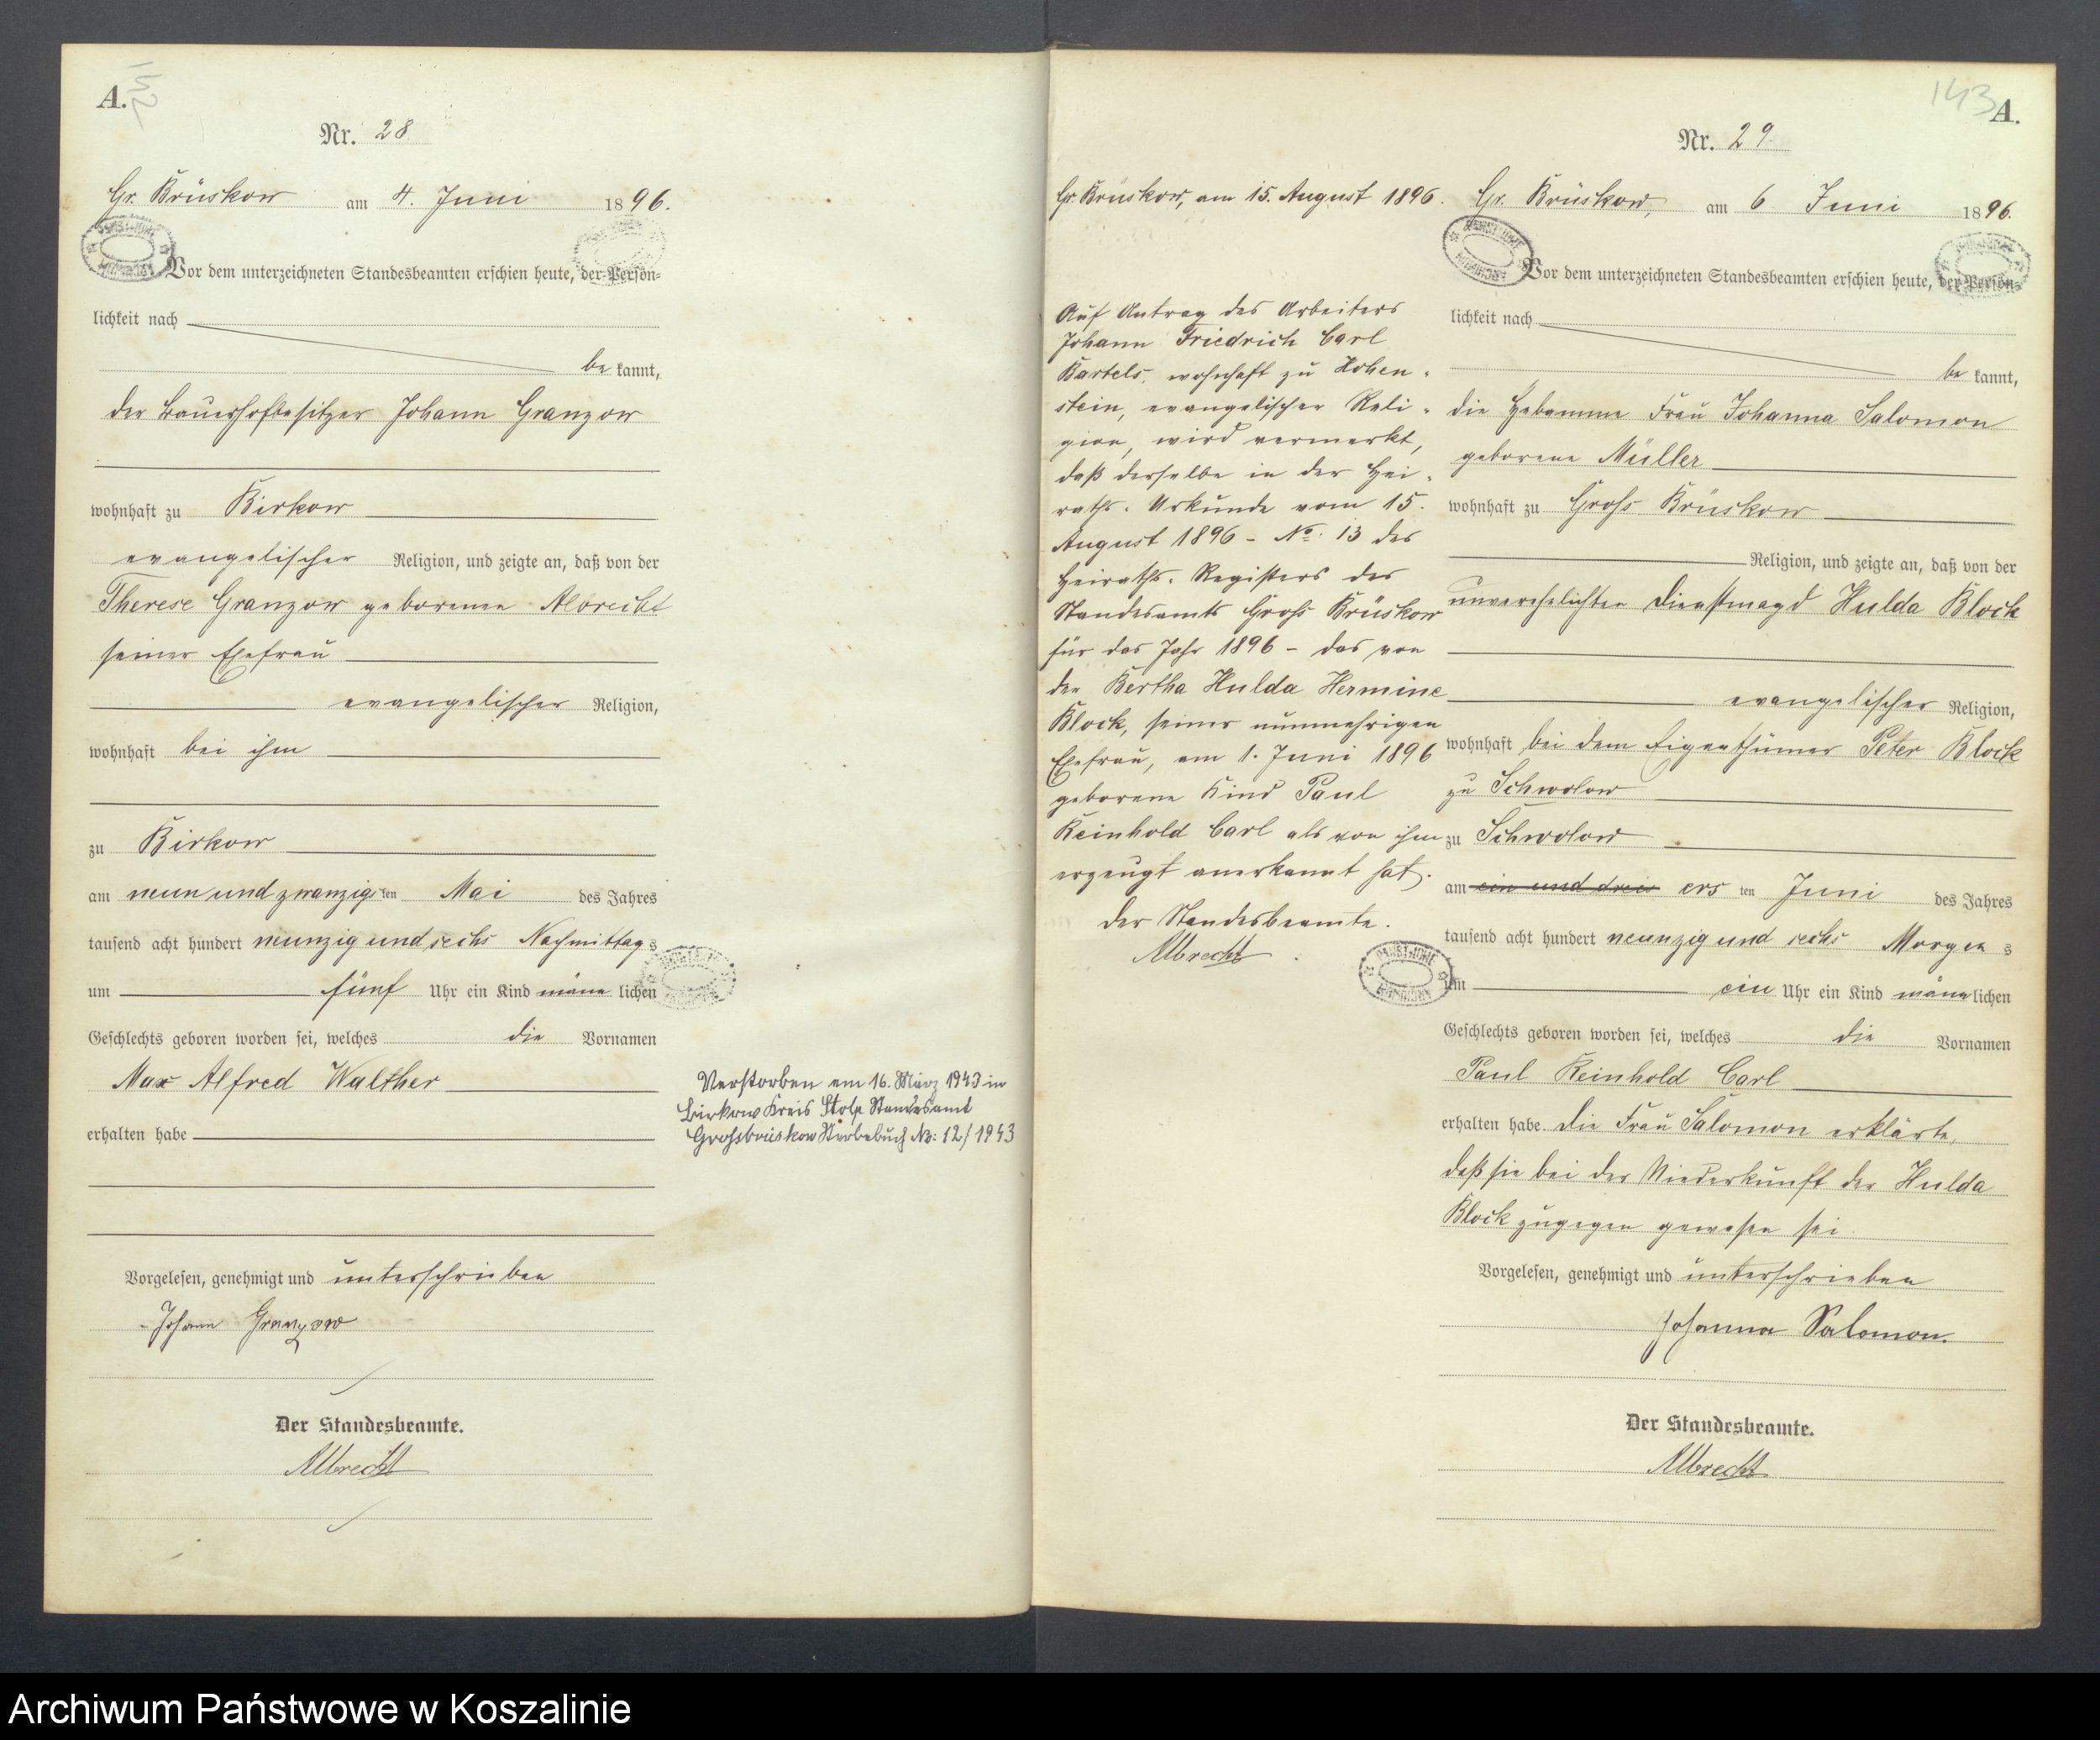 A.
152
Nr. 28
Gr. Brüskow am 4. Juni 1896.
Vor dem unterzeichneten Standesbeamten erschien heute, der Persön-
lichkeit nach
be kannt,
der Bauerhofbesitzer Johann Granzow
wohnhaft zu Birkow
evangelischer Religion, und zeigte an, daß von der
Therese Granzow geborenen Albrecht
seiner Ehefrau
evangelischer Religion,
wohnhaft bei ihm
zu Birkow
am neun und zwanzigsten Mai des Jahres
tausend acht hundert neunzig und sechs Nachmittags
um fünf Uhr ein Kind männlichen
Geschlechts geboren worden sei, welches die Vornamen
Max Alfred Walther
erhalten habe
Vorgelesen, genehmigt und unterschrieben
Johann Granzow
Der Standesbeamte.
Albrecht
Verstorben am 16. März 1943 in
Birkow Kreis Stolp Standesamt
Grossbrüskow Sterbebuch Nr: 12/1943
143
A.
Nr. 29.
Gr. Brüskow, am 15. August 1896.
Auf Antrag des Arbeiters
Johann Friedrich Carl
Bartels, wohnhaft zu Hohen-
stein, evangelischer Reli-
gion, wird vermerkt,
daß derselbe in der Hei-
raths-Urkunde vom 15.
August 1896 - No. 13 des
Heiraths-Registers des
Standesamts Groß Brüskow
für das Jahr 1896 - das von
der Bertha Hulda Hermine
Block, seiner nunmehrigen
Ehefrau, am 1. Juni 1896
geborene Kind Paul
Reinhold Carl als von ihm
erzeugt anerkannt hat.
Der Standesbeamte.
Albrecht
Gr. Brüskow, am 6 Juni 1896.
Vor dem unterzeichneten Standesbeamten erschien heute, der Persön-
lichkeit nach
be kannt,
die Hebamme Frau Johanna Salomon
geborene Müller
wohnhaft zu Groß Brüskow
Religion, und zeigte an, daß von der
unverehelichten Dienstmagd Hulda Block
evangelischer Religion,
wohnhaft bei dem Eigenthümer Peter Block
zu Schwolow
zu Schwolow
am ein und dreis ers ten Juni des Jahres
tausend acht hundert neunzig und sechs Morgens
um ein Uhr ein Kind männlichen
Geschlechts geboren worden sei, welches die Vornamen
Paul Reinhold Carl
erhalten habe. Die Frau Salomon erklärte,
daß sie bei der Niederkunft der Hulda
Block zugegen gewesen sei.
Vorgelesen, genehmigt und unterschrieben
Johanna Salomon.
Der Standesbeamte.
Albrecht
Archiwum Państwowe w Koszalinie